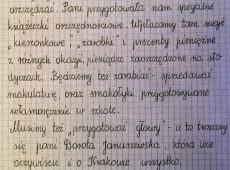 oszczędzać. Pani przygotowała nam specjalne
książeczki oszczędnościowe. Wpłacamy tam swoje
"kieszonkowe", "zarobki" i prezenty pieniężne
z różnych okazji, pieniądze zaoszczędzone na sło-
dyczach. Będziemy też zarabiać - sprzedawać
makulaturę oraz smakołyki przygotowywane
własnoręcznie w szkole.
Musimy też "przygotować głowy" - o to troszczy
się pani Dorota Januszewska, która wie
oczywiście i o Krakowie wszystko.